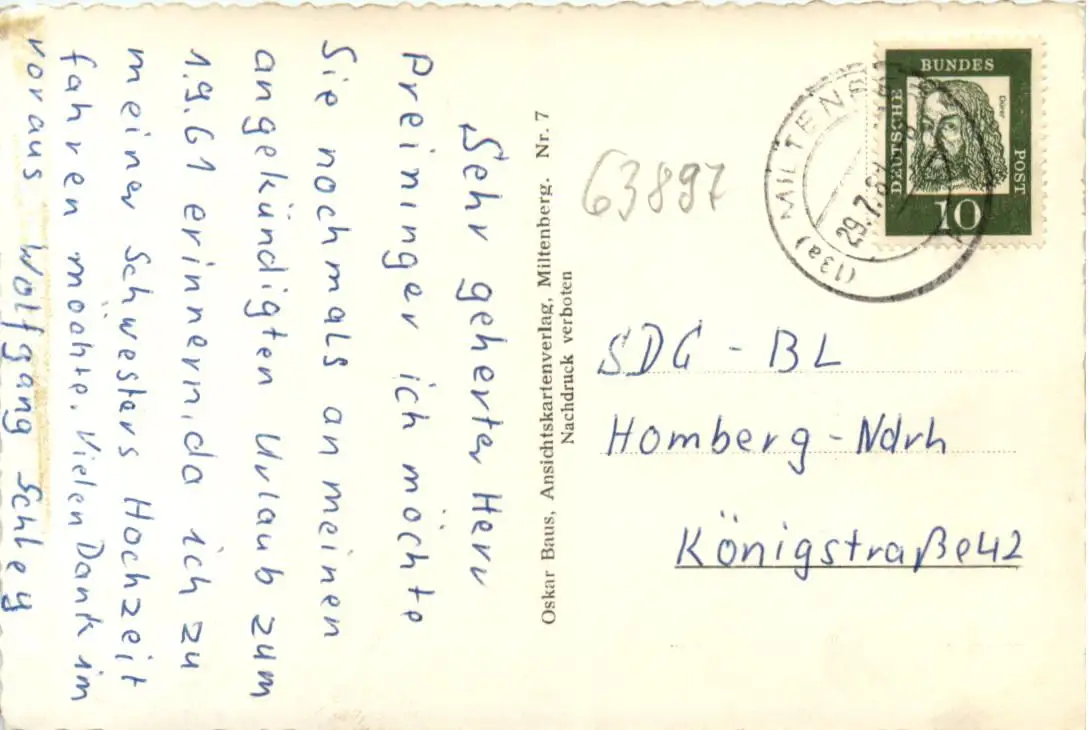 Sehr geherter Herr
Preininger ich möchte
Sie nochmals an meinen
angekündigten Urlaub zum
1.9.61 erinnern, da ich zu
meiner Schwesters Hochzeit
fahren möchte. Vielen Dank im
voraus Wolfgang Schley
Oskar Baus, Ansichtskartenverlag, Miltenberg. Nr. 7
Nachdruck verboten
63897
DEUTSCHE
BUNDES
POST
Dürer
10
(13a) MILTENB
29.7.61
SDG - BL
Homberg - Ndrh
Königstraße 42